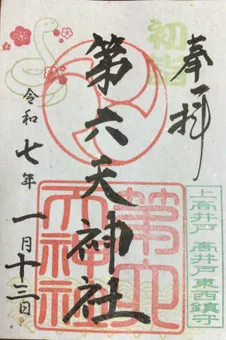 奉拝
初詣
第六天神社
第六天神社
上高井戸 高井戸東西鎮守
令和七年一月十三日